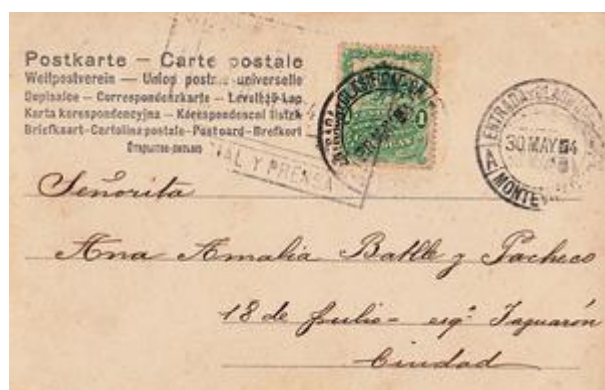 Postkarte – Carte postale
Weltpostverein — Union postale universelle
Dopisnice – Correspondenzkarte – Levelező-Lap
Karta korespondencyjna – Korespondencní listek
Briefkaart-Cartolina postale-Postcard-Brefkort
Открытое письмо
Y PRENSA
ENTRADA Y CLASIFICACION
30 MAY 04
MONTEV
Señorita
Ana Amalia Batlle y Pacheco
18 de Julio – esqª Yaguarón
Ciudad